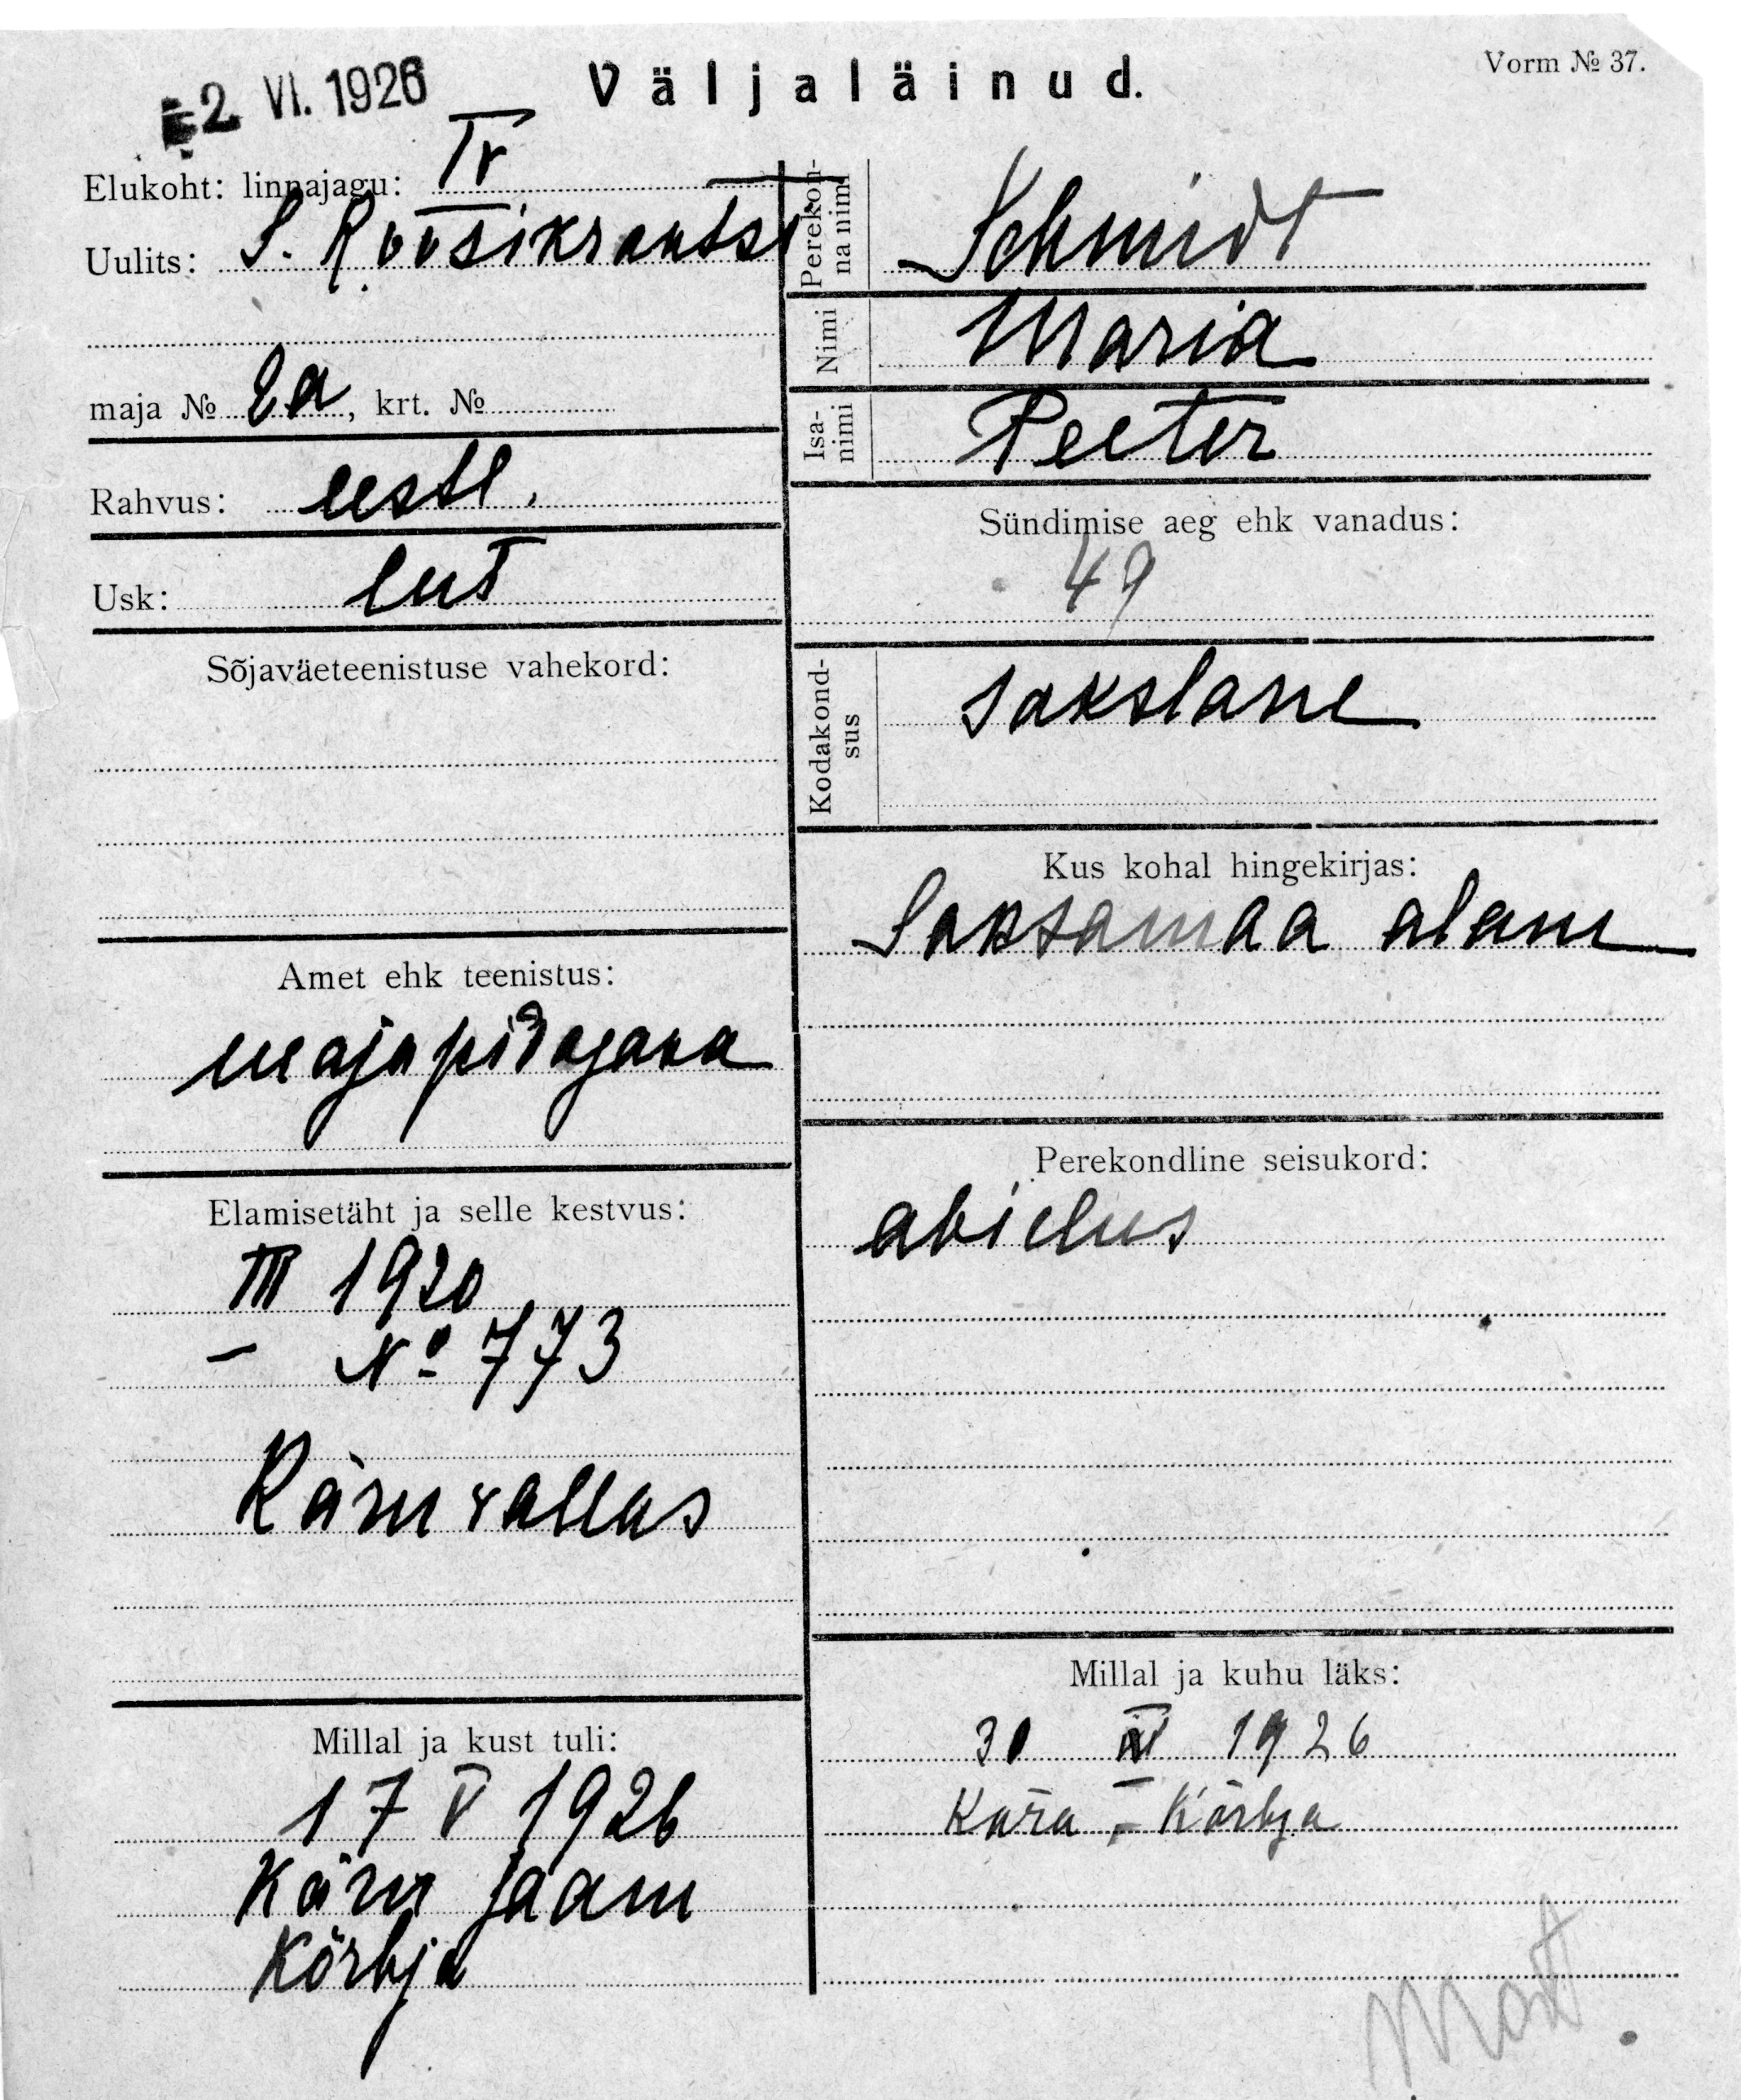 2. VI. 1926
Väljaläinud.
Vorm № 37.
Elukoht: linnajagu: IV
Uulits: S. Roosikrantsi
maja № 2a, krt. №
Rahvus: eestl.
Usk: lut
Sõjaväeteenistuse vahekord:
Amet ehk teenistus:
majapidajana
Elamisetäht ja selle kestvus:
III 1920
– № 773
Käru vallas
Millal ja kust tuli:
17 V 1926
Käru jaam
Kõrbja
Perekonna nimi Schmidt
Nimi Maria
Isanimi Peeter
Sündimise aeg ehk vanadus:
49
Kodakondsus sakslane
Kus kohal hingekirjas:
Saksamaa alam
Perekondline seisukord:
abielus
Millal ja kuhu läks:
30 1926
Käru - Kõrbja